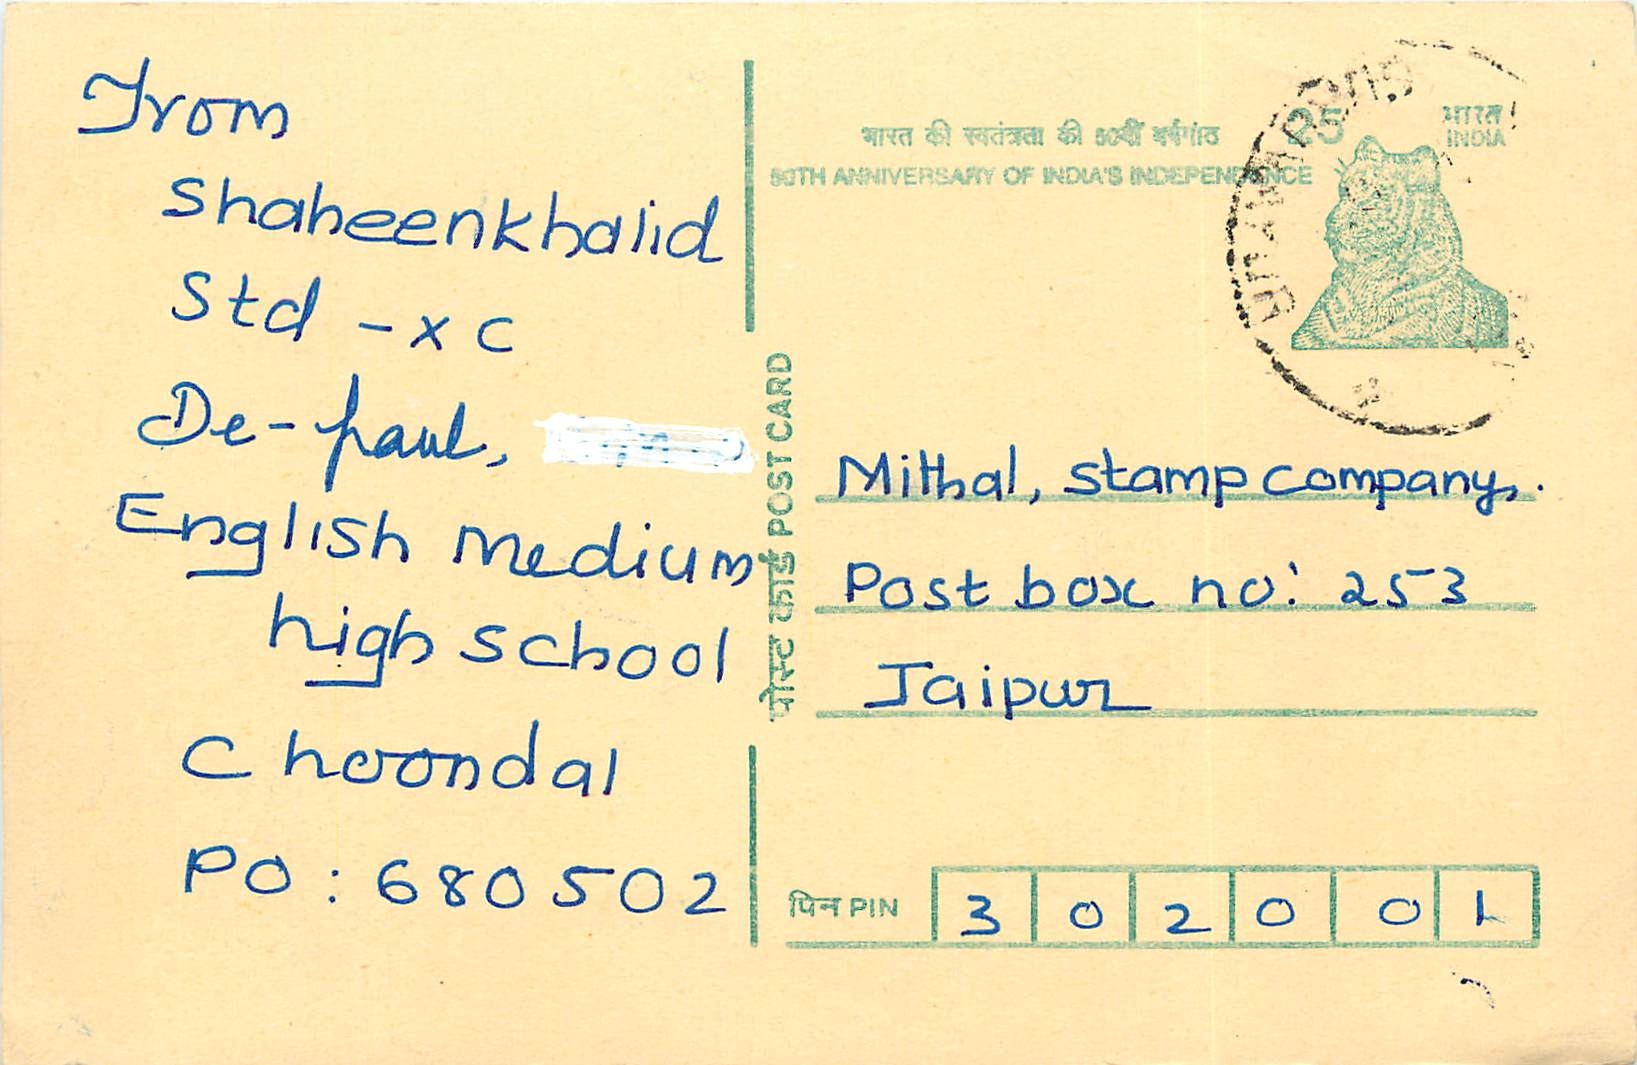 From
Shaheenkhalid
Std - X C
De-paul,
English Medium
high school
Choondal
PO : 680502
भारत की स्वतंत्रता की 50वीं वर्षगांठ
50TH ANNIVERSARY OF INDIA'S INDEPENDENCE
25
भारत
INDIA
पोस्ट कार्ड POST CARD
Mithal, stamp company,.
Post box no: 253
Jaipur
पिन PIN 3 0 2 0 0 1